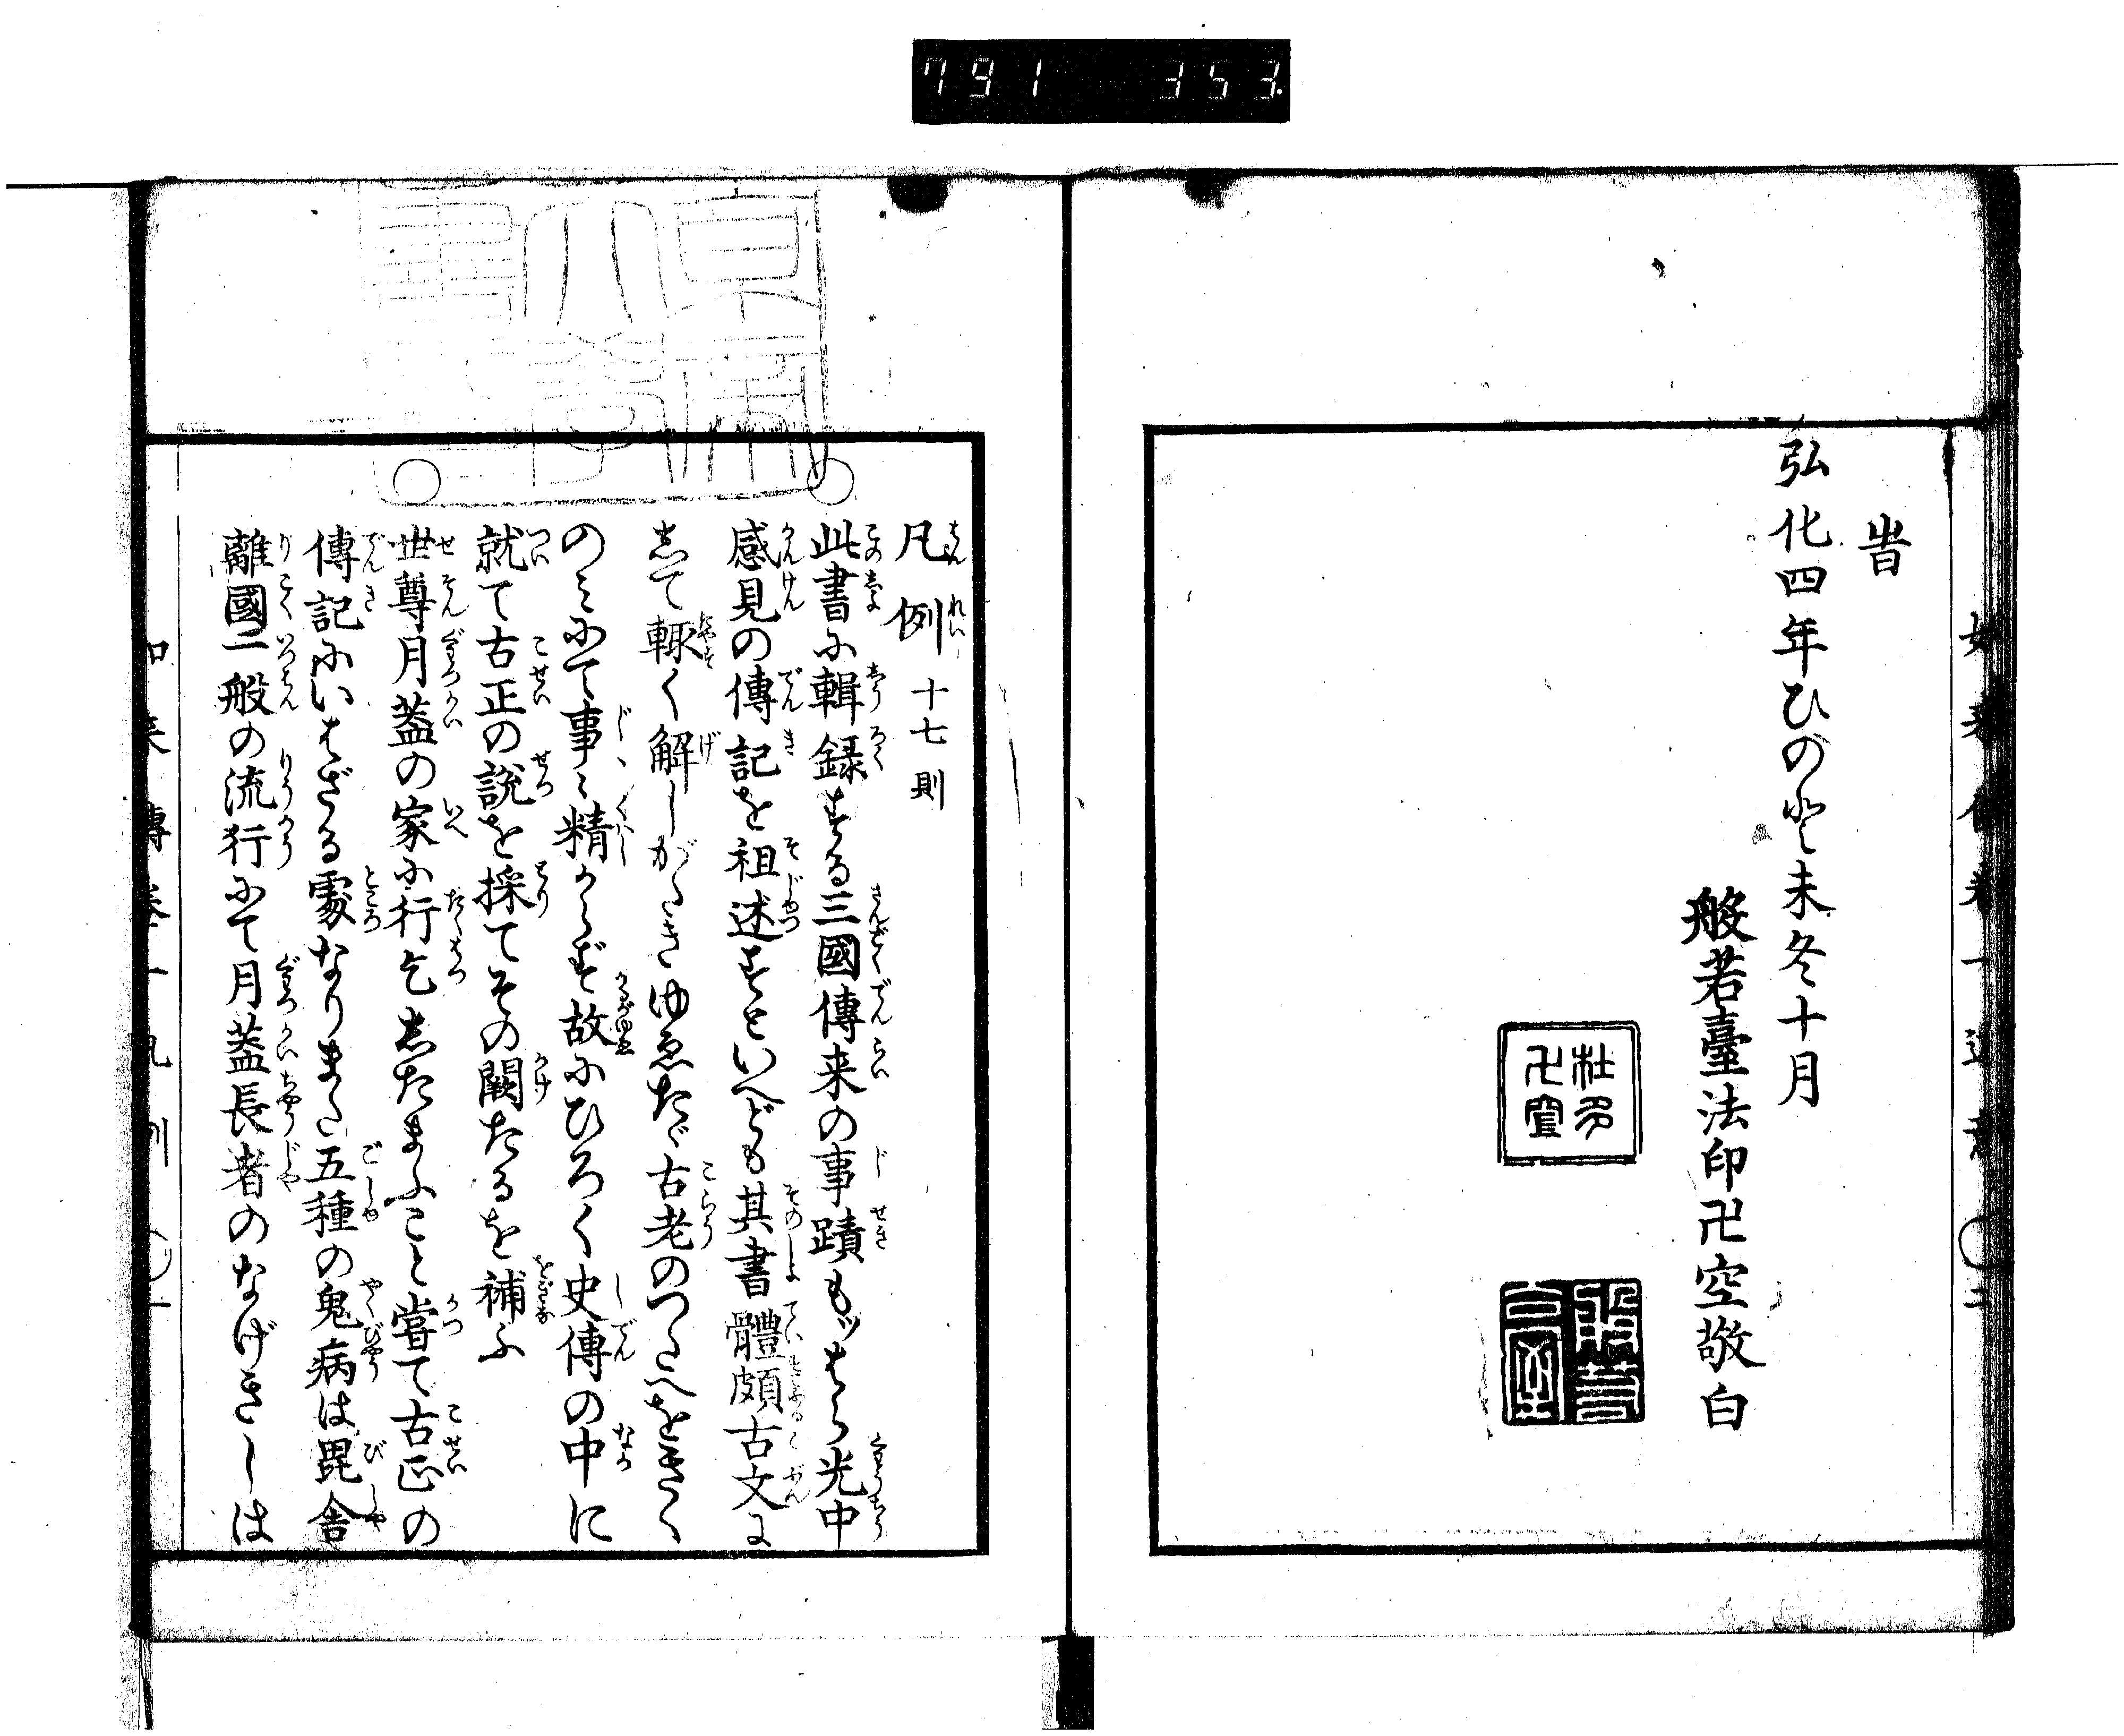 791 353
旹
弘化四年ひのと未冬十月
般若臺法印卍空敬白
凡例十七則
此書に輯録する三國傳来の事蹟もッはら光中
感見の傳記を祖述すといへども其書體頗古文に
して輙く解しがたきゆゑたゞ古老のつたへをきく
のミにて事〻精からず故にひろく史傳の中に
就て古正の説を採てその闕たるを補ふ
世尊月蓋の家に行乞したまふこと嘗て古正の
傳記にいはざる處なりまた五種の鬼病は毘舎
離國一般の流行にて月蓋長者のなげきしは